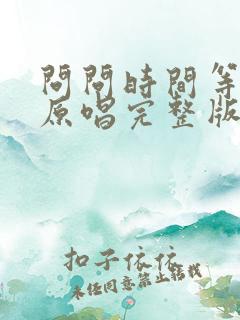 問問時間等
原唱完整版
扣子依依
未任同意禁止转载